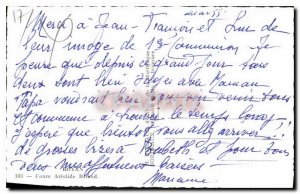 aussi
Merci à Jean-Francois et Luc de
leur image de 1ère Communion. Je
pense que depuis ce grand jour tous
deux sont bien sages avec Maman
Papa voudrait bien aller vous
commence à trouver le temps long
j'espère que bientôt vous allez arriver
de grosses bises à Elisabeth et pour vous
deux mes affectueux baisers
ROYAN
103 - Cours Aristide Briand.
Marianne